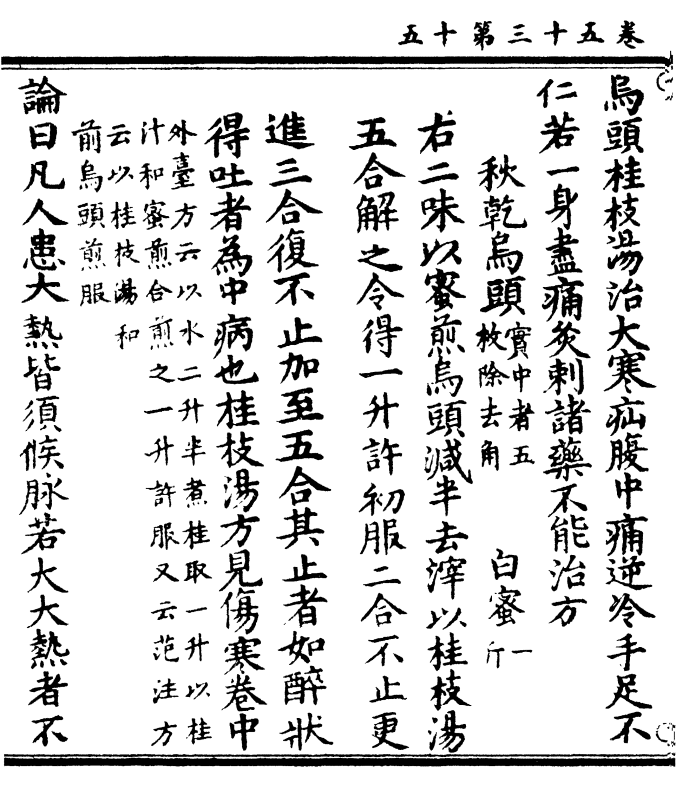 卷五十三第十五
烏頭桂枝湯治大寒疝腹中痛逆冷手足不
仁若一身盡痛灸刺諸藥不能治方
秋乾烏頭實中者五枚除去角 白蜜一斤
右二味以蜜煎烏頭減半去滓以桂枝湯
五合解之令得一升許初服二合不止更
進三合復不止加至五合其止者如醉狀
得吐者為中病也桂枝湯方見傷寒卷中
外臺方云以水二升半煮桂取一升以桂
汁和蜜煎合煎之一升許服又云范注方
云以桂枝湯和
前烏頭煎服
論曰凡人患大熱皆須候脉若大大熱者不